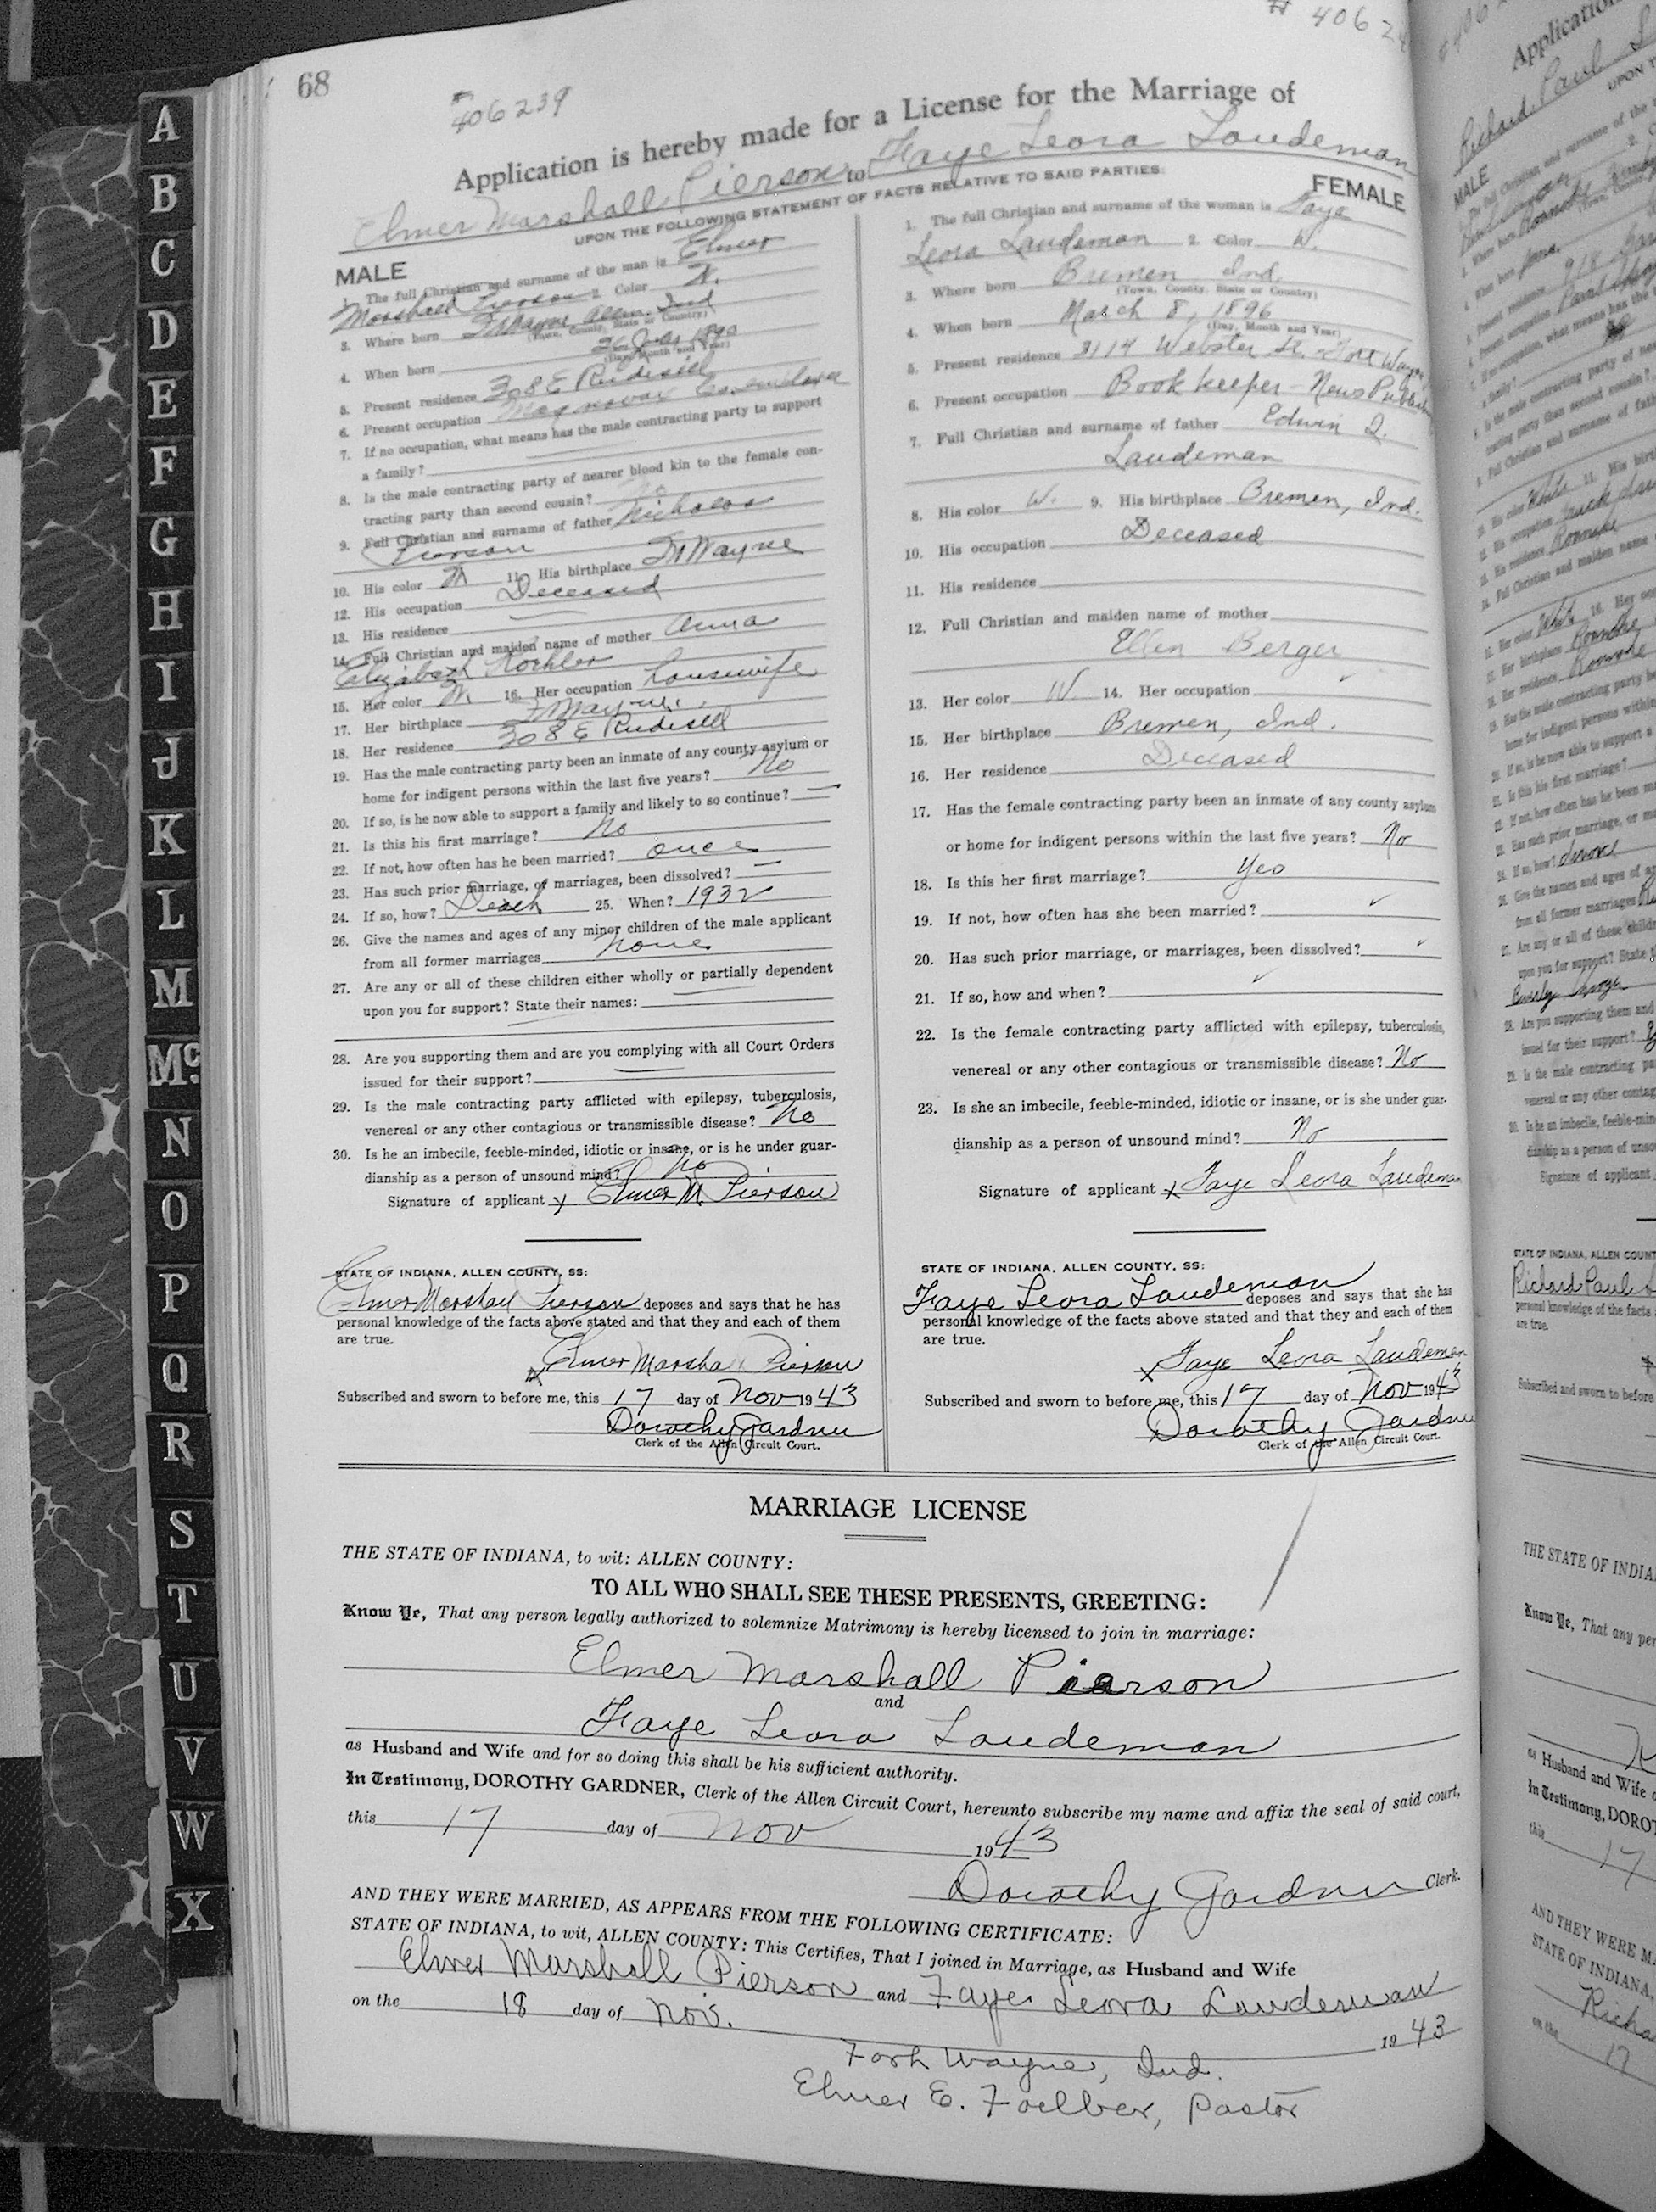 68
#406239
# 4062
Application is hereby made for a License for the Marriage of
Elmer Marshall Pierson to Faye Leora Laudeman
UPON THE FOLLOWING STATEMENT OF FACTS RELATIVE TO SAID PARTIES:
MALE
1. The full Christian and surname of the man is Elmer
Marshall Pierson 2. Color W.
3. Where born Ft Wayne Allen Ind
(Town, County, State or Country)
4. When born 26 July 1890
(Day, Month and Year)
5. Present residence 308 E Rudisill
6. Present occupation Magnavox Co. employee
7. If no occupation, what means has the male contracting party to support
a family?
8. Is the male contracting party of nearer blood kin to the female con-
tracting party than second cousin? No
9. Full Christian and surname of father Nicholas
Pierson
10. His color W 11. His birthplace Ft Wayne
12. His occupation Deceased
13. His residence
14. Full Christian and maiden name of mother Anna
Elizabeth Koehler
15. Her color W. 16. Her occupation housewife
17. Her birthplace Ft Wayne
18. Her residence 308 E Rudisill
19. Has the male contracting party been an inmate of any county asylum or
home for indigent persons within the last five years? No
20. If so, is he now able to support a family and likely to so continue? —
21. Is this his first marriage? No
22. If not, how often has he been married? once
23. Has such prior marriage, or marriages, been dissolved? —
24. If so, how? Death 25. When? 1932
26. Give the names and ages of any minor children of the male applicant
from all former marriages none
27. Are any or all of these children either wholly or partially dependent
upon you for support? State their names:
28. Are you supporting them and are you complying with all Court Orders
issued for their support?
29. Is the male contracting party afflicted with epilepsy, tuberculosis,
venereal or any other contagious or transmissible disease? No
30. Is he an imbecile, feeble-minded, idiotic or insane, or is he under guar-
dianship as a person of unsound mind? No
Signature of applicant x Elmer M Pierson
STATE OF INDIANA, ALLEN COUNTY, SS:
Elmer Marshall Pierson deposes and says that he has
personal knowledge of the facts above stated and that they and each of them
are true.
x Elmer Marshall Pierson
Subscribed and sworn to before me, this 17 day of Nov 1943
Dorothy Gardner
Clerk of the Allen Circuit Court.
FEMALE
1. The full Christian and surname of the woman is Faye
Leora Laudeman 2. Color W.
3. Where born Bremen Ind.
(Town, County, State or Country)
4. When born March 8, 1896
(Day, Month and Year)
5. Present residence 3114 Webster St. Fort Wayne
6. Present occupation Bookkeeper - News Publishing
7. Full Christian and surname of father Edwin Q.
Laudeman
8. His color W. 9. His birthplace Bremen, Ind.
10. His occupation Deceased
11. His residence
12. Full Christian and maiden name of mother
Ellen Berger
13. Her color W 14. Her occupation
15. Her birthplace Bremen, Ind.
16. Her residence Deceased
17. Has the female contracting party been an inmate of any county asylum
or home for indigent persons within the last five years? No
18. Is this her first marriage? Yes
19. If not, how often has she been married?
20. Has such prior marriage, or marriages, been dissolved?
21. If so, how and when?
22. Is the female contracting party afflicted with epilepsy, tuberculosis,
venereal or any other contagious or transmissible disease? No
23. Is she an imbecile, feeble-minded, idiotic or insane, or is she under guar-
dianship as a person of unsound mind? No
Signature of applicant x Faye Leora Laudeman
STATE OF INDIANA, ALLEN COUNTY, SS:
Faye Leora Laudeman deposes and says that she has
personal knowledge of the facts above stated and that they and each of them
are true.
x Faye Leora Laudeman
Subscribed and sworn to before me, this 17 day of Nov 1943
Dorothy Gardner
Clerk of the Allen Circuit Court.
MARRIAGE LICENSE
THE STATE OF INDIANA, to wit: ALLEN COUNTY:
TO ALL WHO SHALL SEE THESE PRESENTS, GREETING:
Know Ye, That any person legally authorized to solemnize Matrimony is hereby licensed to join in marriage:
Elmer Marshall Pierson
and
Faye Leora Laudeman
as Husband and Wife and for so doing this shall be his sufficient authority.
In Testimony, DOROTHY GARDNER, Clerk of the Allen Circuit Court, hereunto subscribe my name and affix the seal of said court,
this 17 day of Nov 1943
Dorothy Gardner Clerk.
AND THEY WERE MARRIED, AS APPEARS FROM THE FOLLOWING CERTIFICATE:
STATE OF INDIANA, to wit, ALLEN COUNTY: This Certifies, That I joined in Marriage, as Husband and Wife
Elmer Marshall Pierson and Faye Leora Laudeman
on the 18 day of Nov. 1943
Fort Wayne, Ind.
Elmer E. Foelber, Pastor
A
B
C
D
E
F
G
H
I
J
K
L
M
Mc.
N
O
P
Q
R
S
T
U
V
W
X